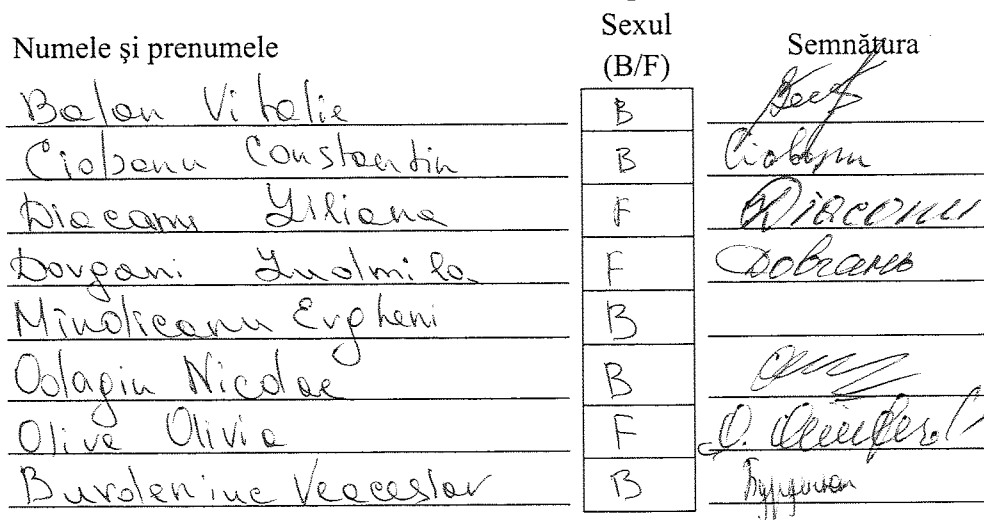 Numele şi prenumele Sexul (B/F) Semnătura
Balan Vitalie B
Ciobanu Constantin B Ciobanu
Diacanu Liliana F Diaconu
Dovgani Ludmila F Dobrani
Mindlicanu Evgheni B
Odagiu Nicolae B
Oliva Olivia F
Burdeniuc Veaceslav B